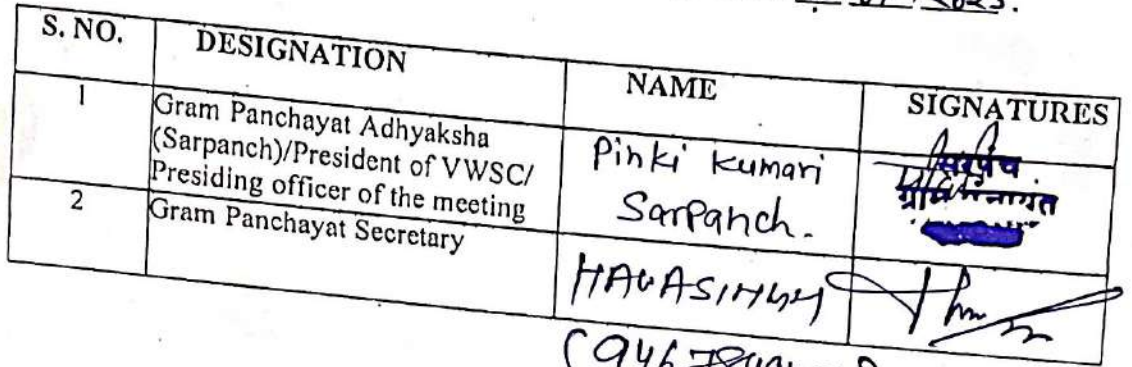 S. NO.
DESIGNATION
NAME
SIGNATURES
1
Gram Panchayat Adhyaksha
(Sarpanch)/President of VWSC/
Presiding officer of the meeting
Pinki Kumari
Sarpanch.
सरपंच
ग्राम
2
Gram Panchayat Secretary